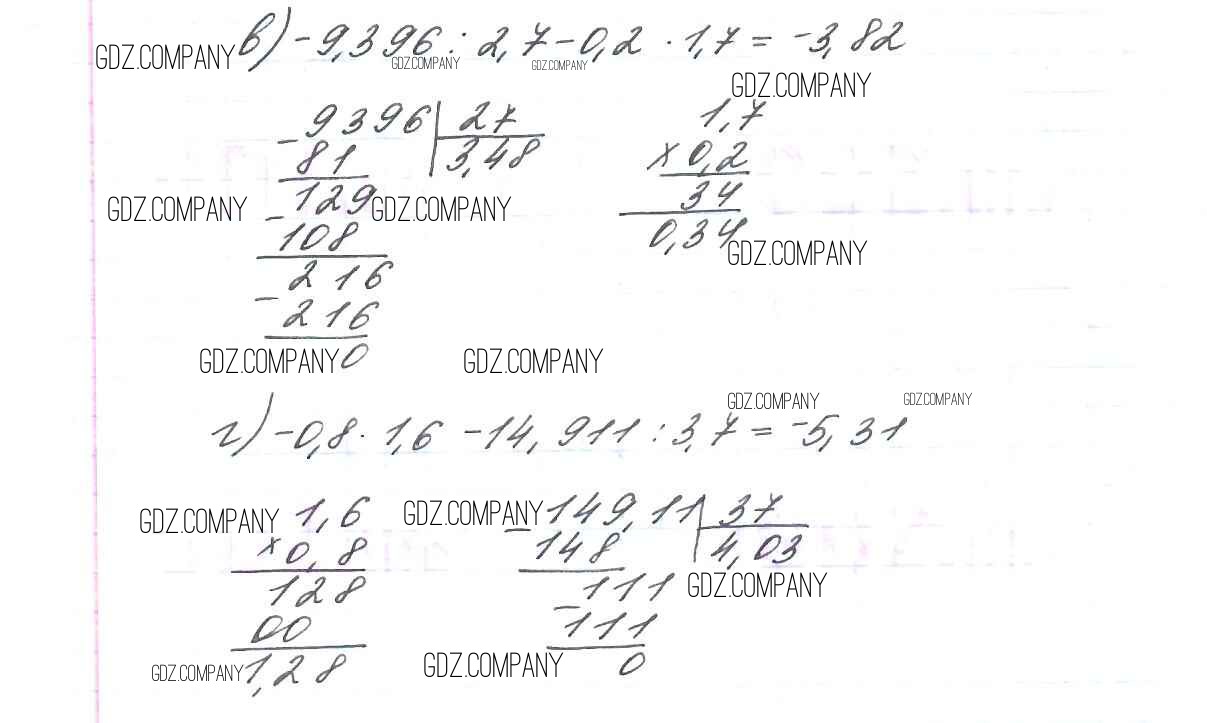 GDZ.COMPANY в) -9,396 : 2,7 - 0,2 · 1,7 = -3,82
GDZ.COMPANY GDZ.COMPANY
GDZ.COMPANY
- 9396 | 27
81 3,48
- 129
108
- 216
216
0
1,7
× 0,2
34
0,34
GDZ.COMPANY GDZ.COMPANY
GDZ.COMPANY
GDZ.COMPANY GDZ.COMPANY
GDZ.COMPANY GDZ.COMPANY
г) -0,8 · 1,6 - 14,911 : 3,7 = -5,31
GDZ.COMPANY 1,6
× 0,8
128
00
1,28
GDZ.COMPANY
GDZ.COMPANY - 149,11 | 37
148 4,03
- 111
111
0
GDZ.COMPANY
GDZ.COMPANY